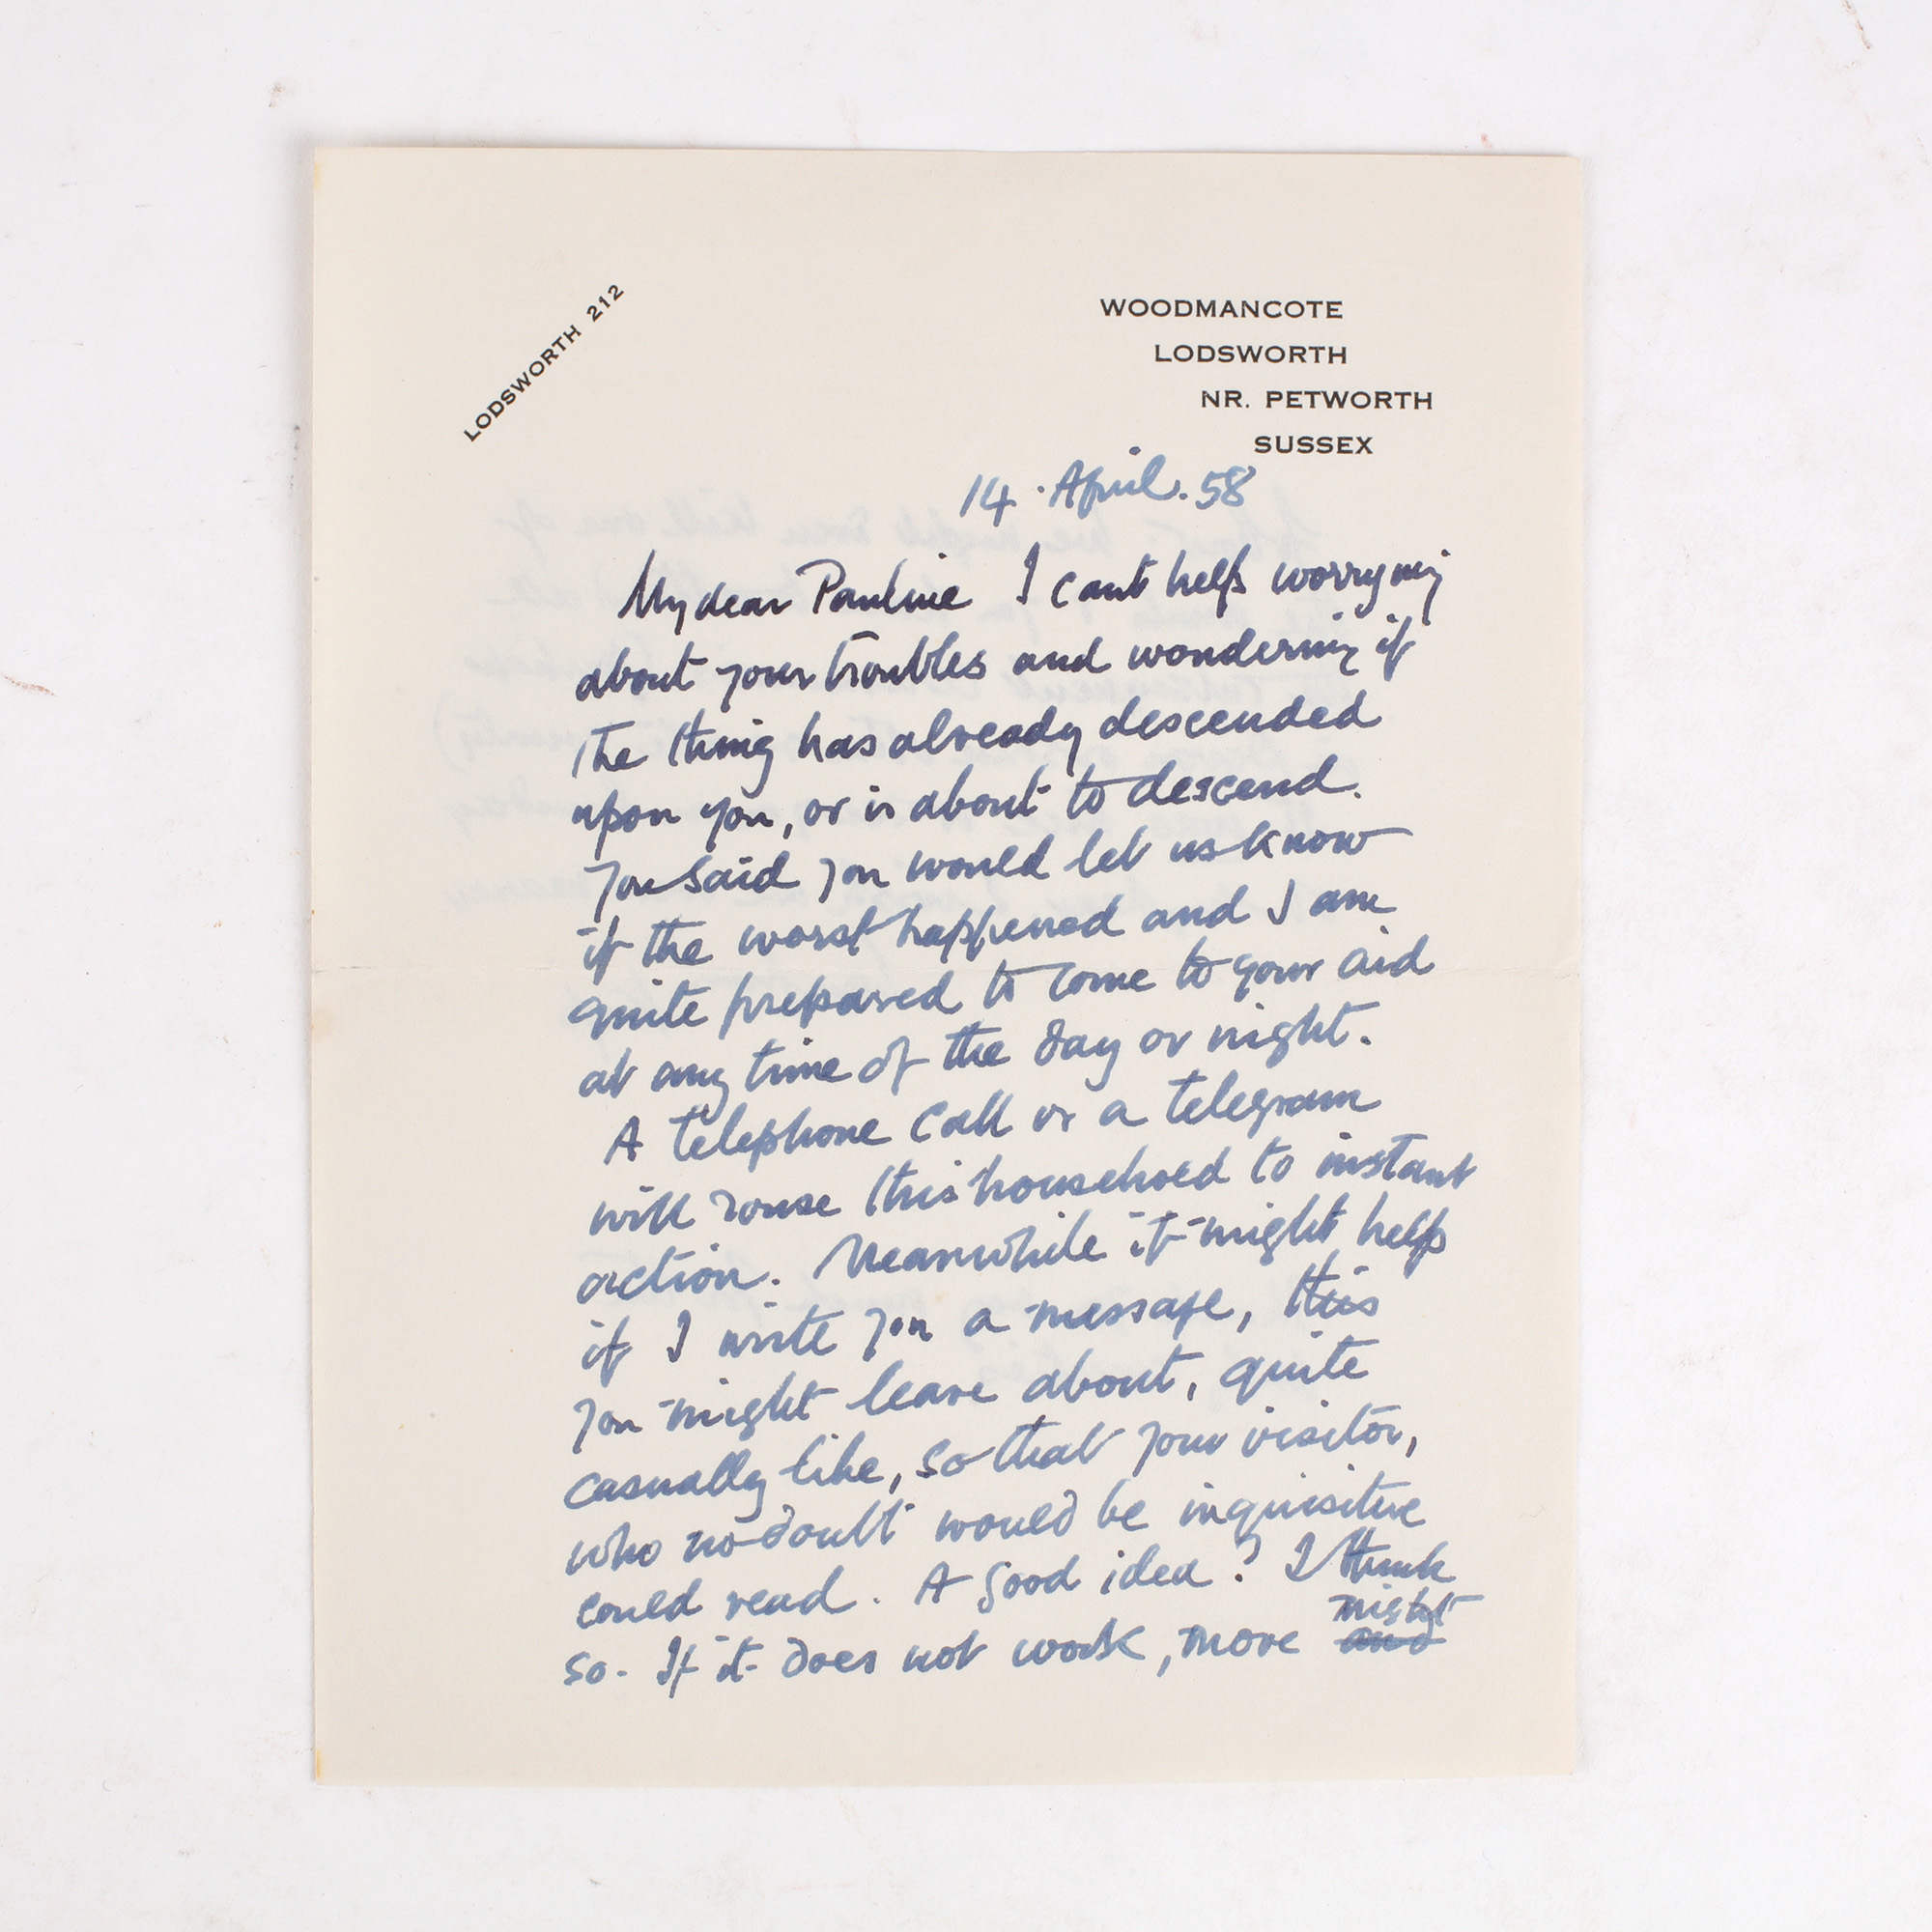 LODSWORTH 212
WOODMANCOTE
LODSWORTH
NR. PETWORTH
SUSSEX
14 · April . 58
My dear Pauline I cant help worrying
about your troubles and wondering if
the thing has already descended
upon you, or is about to descend.
You said you would let us know
if the worst happened and I am
quite prepared to come to your aid
at any time of the day or night.
A telephone call or a telegram
will rouse this household to instant
action. Meanwhile it might help
if I write you a message, this
you might leave about, quite
casually like, so that your visitor,
who no doubt would be inquisitive
could read. A good idea? I think
might
so. If it does not work, more and